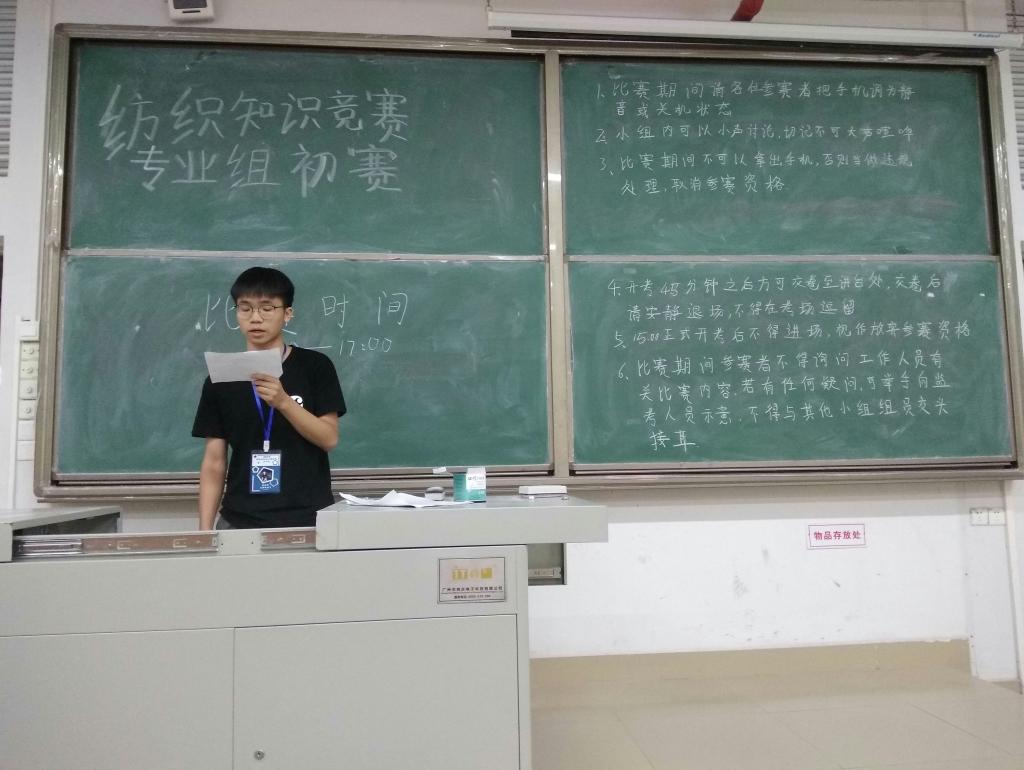 纺织知识竞赛
专业组初赛
比 时间
—17:00
1、比赛期间请各位参赛者把手机调为静
音或关机状态
2、小组内可以小声讨论,切记不可大声喧哗
3、比赛期间不可以拿出手机,否则当做违规
处理,取消参赛资格.
4、开考45分钟之后方可交卷至讲台处,交卷后
请安静退场,不得在考场逗留
5、15:00正式开考后不得进场,视作放弃参赛资格
6、比赛期间参赛者不得询问工作人员有
关比赛内容.若有任何疑问,可举手向监
考人员示意,不得与其他小组组员交头
接耳
物品存放处